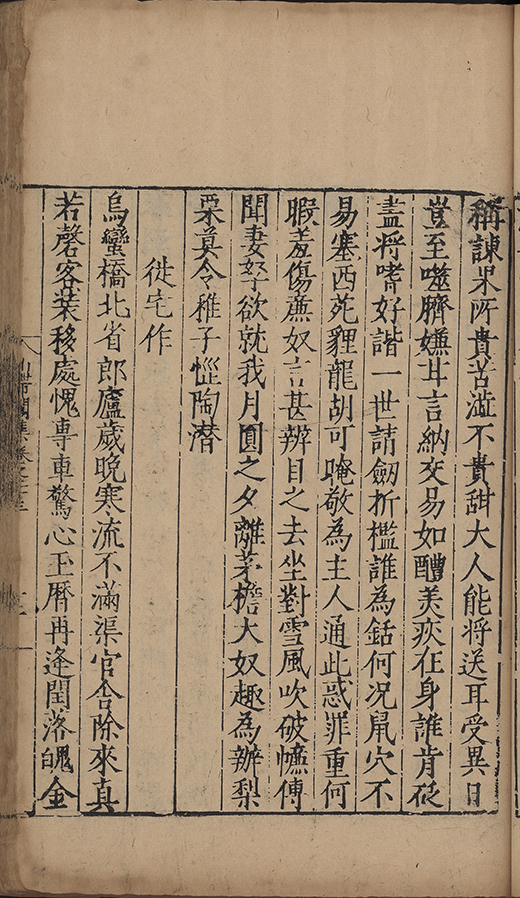 稱諫果所貴苦澁不貴甜大人能將送耳受異日
豈至噬臍嫌耳言納交易如醴美疢在身誰肯砭
盡將嗜好諧一世請劒折檻誰為銛何況鼠穴不
易塞西苑貍龍胡可唵敬為主人通此惑罪重何
暇羞傷廉奴言甚辨目之去坐對雪風吹破㡘傳
聞妻孥欲就我月圓之夕離茅檐大奴趣為辦梨
栗莫令稚子恇陶潛
徙宅作
烏蠻橋北省郎廬歲晚寒流不滿渠官舍除來真
若磬客裝移處愧專車驚心玉曆再逢閏落魄金